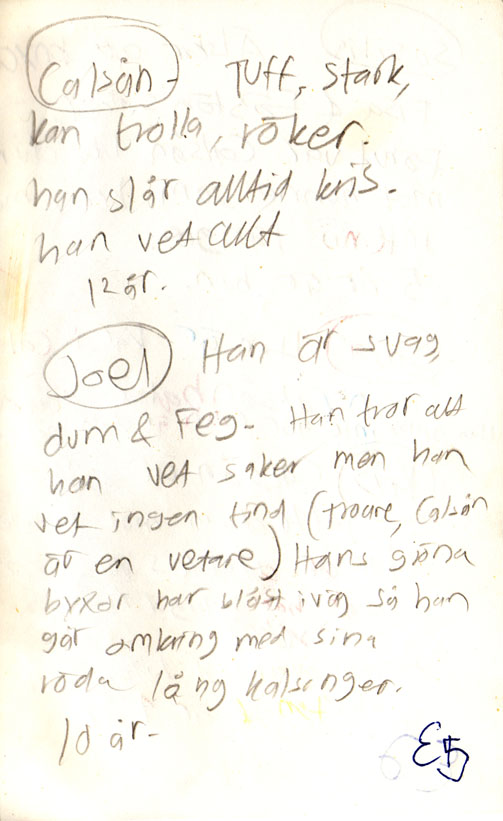 Calsån - Tuff, stark,
kan trolla, röker.
han slår alltid knis.
han vet allt
12 år.
Joel Han är svag,
dum & Feg- Han tror att
han vet saker men han
vet ingen tind (troare, Calsån
är en vetare) Hans gröna
byxor har blåst iväg så han
går omkring med sina
röda lång kalsonger.
10 år-